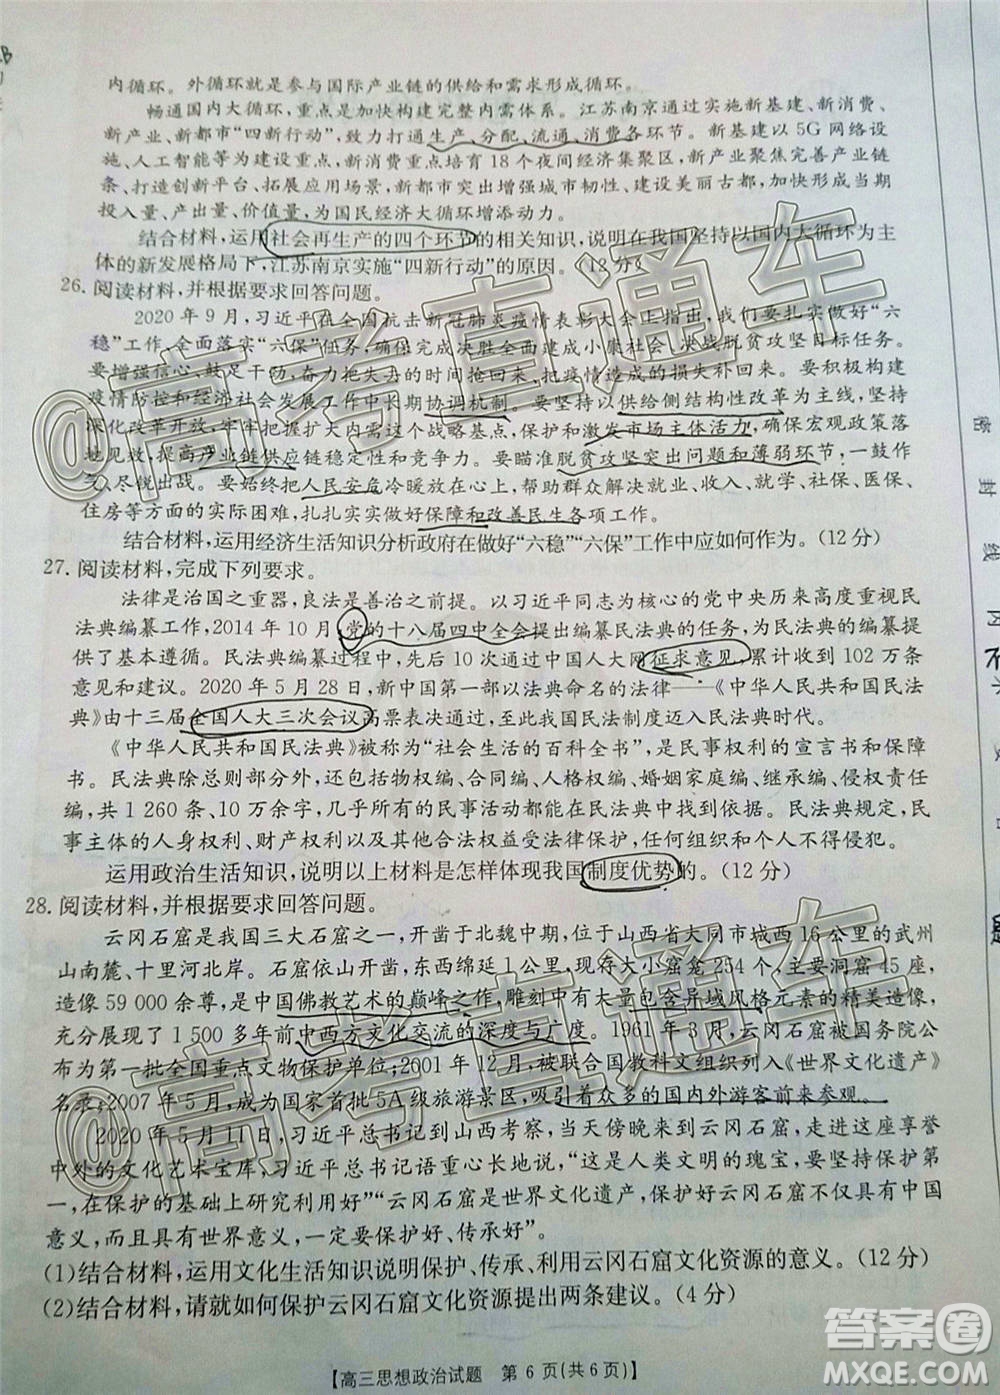 内循环。外循环就是参与国际产业链的供给和需求形成循环。
畅通国内大循环,重点是加快构建完整内需体系。江苏南京通过实施新基建、新消费、
新产业、新都市“四新行动”,致力打通生产、分配、流通、消费各环节。新基建以 5G 网络设
施、人工智能等建设为重点,新消费重点培育 18 个夜间经济集聚区,新产业聚焦完善产业链
条、打造创新平台、拓展应用场景,新都市突出增强城市韧性、建设美丽古都,加快形成当期
投入量、产出量、价值量,为国民经济大循环增添动力。
结合材料,运用社会再生产的四个环节的相关知识,说明在我国坚持以国内大循环为主
体的新发展格局下,江苏南京实施“四新行动”的原因。(12 分)
26. 阅读材料,并根据要求回答问题。
2020 年 9 月,习近平在全国抗击新冠肺炎疫情表彰大会上指出,我们要扎实做好“六
稳”工作,全面落实“六保”任务,确保完成决胜全面建成小康社会、决战脱贫攻坚目标任务。
要增强信心、鼓足干劲,奋力把失去的时间抢回来,把疫情造成的损失补回来。要抓紧建设
疫情防控和经济社会发展工作中长期协调机制。要坚持以供给侧结构性改革为主线,坚持
深化改革开放,牢牢把握扩大内需这个战略基点,保护和激发市场主体活力,确保宏观政策落
地见效,提高产业链供应链稳定性和竞争力。要瞄准脱贫攻坚突出问题和薄弱环节,一鼓作
气、尽锐出战。要始终把人民安危冷暖放在心上,帮助群众解决就业、收入、就学、社保、医保、
住房等方面的实际困难,扎扎实实做好保障和改善民生各项工作。
结合材料,运用经济生活知识分析政府在做好“六稳”“六保”工作中应如何作为。(12 分)
27. 阅读材料,完成下列要求。
法律是治国之重器,良法是善治之前提。以习近平同志为核心的党中央历来高度重视民
法典编纂工作,2014 年 10 月,党的十八届四中全会提出编纂民法典的任务,为民法典编纂提
供了基本遵循。民法典编纂过程中,先后 10 次通过中国人大网征求意见,累计收到 102 万条
意见和建议。2020 年 5 月 28 日,新中国第一部以法典命名的法律——《中华人民共和国民法
典》由十三届全国人大三次会议高票表决通过,至此我国民法制度迈入民法典时代。
《中华人民共和国民法典》被称为“社会生活的百科全书”,是民事权利的宣言书和保障
书。民法典除总则部分外,还包括物权编、合同编、人格权编、婚姻家庭编、继承编、侵权责任
编,共 1 260 条、10 万余字,几乎所有的民事活动都能在民法典中找到依据。民法典规定,
民事主体的人身权利、财产权利以及其他合法权益受法律保护,任何组织和个人不得侵犯。
运用政治生活知识,说明以上材料是怎样体现我国制度优势的。(12 分)
28. 阅读材料,并根据要求回答问题。
云冈石窟是我国三大石窟之一,开凿于北魏中期,位于山西省大同市城西 16 公里的武州
山南麓、十里河北岸。石窟依山开凿,东西绵延 1 公里,现存大小窟龛 254 个,主要洞窟 45 座,
造像 59 000 余尊,是中国佛教艺术的巅峰之作,雕刻中有大量包含异域风格元素的精美造像,
充分展现了 1 500 多年前中西方文化交流的深度与广度。1961 年 3 月,云冈石窟被国务院公
布为第一批全国重点文物保护单位;2001 年 12 月,被联合国教科文组织列入《世界文化遗产》
名录;2007 年 5 月,成为国家首批 5A 级旅游景区,吸引着众多的国内外游客前来参观。
2020 年 5 月 11 日,习近平总书记到山西考察,当天傍晚就来到云冈石窟,走进这座享誉
中外的文化艺术宝库,习近平总书记语重心长地说,“这是人类文明的瑰宝,要坚持保护第
一,在保护的基础上研究利用好”“云冈石窟是世界文化遗产,保护好云冈石窟不仅具有中国
意义,而且具有世界意义,一定要保护好、传承好”。
(1)结合材料,运用文化生活知识说明保护、传承、利用云冈石窟文化资源的意义。(12 分)
(2)结合材料,请就如何保护云冈石窟文化资源提出两条建议。(4 分)
【高三思想政治试题 第 6 页(共 6 页)】
密
封
线
内
不
要
@高考直通车
@高考直通车
答案圈
MXQE.COM